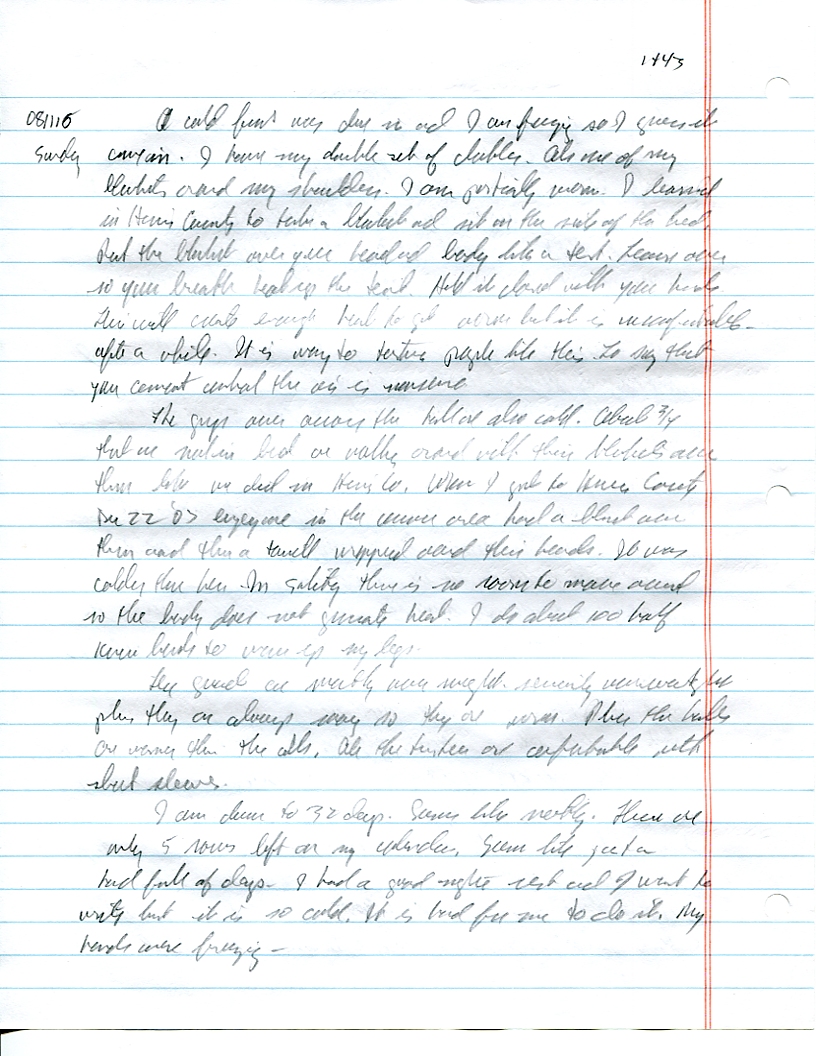 1 of 3
081116 A cold front was due in and I am freezing so I guess it
Sunday came in. I have my double set of clothes. Also one of my
blankets around my shoulders. I am partially warm. I learned
in Harris County to take a blanket and sit on the side of the bed.
Put the blanket over your head and body like a tent. Leave over
so your breath heats up the tent. Hold it closed with your hands.
This will create enough heat to get warm but it is uncomfortable
after a while. It is way to torture people like this. To say that
you cannot control the air is nonsense
The guys over across the hall are also cold. About 3/4
that are not in bed are walking around with their blankets over
them like we did in Harris Co. When I got to Harris County
Dec 22 '03 everyone in the area had a blanket over
them and then a towel wrapped around their heads. It was
colder than here. In solitary there is no room to move around
so the body does not generate heat. I do about 100 half
knee bends to warm up my legs.
The guards are mostly over weight.
plus they are always so they are warm. Plus the halls
are warmer than the cells. Also the are comfortable with
short sleeves.
I am down to 32 days. Seems like nothing. There are
only 5 rows left on my calendar. Seems like just a
hand full of days. I had a good nights rest and I want to
write but it is so cold. It is hard for me to do it. My
hands were freezing -